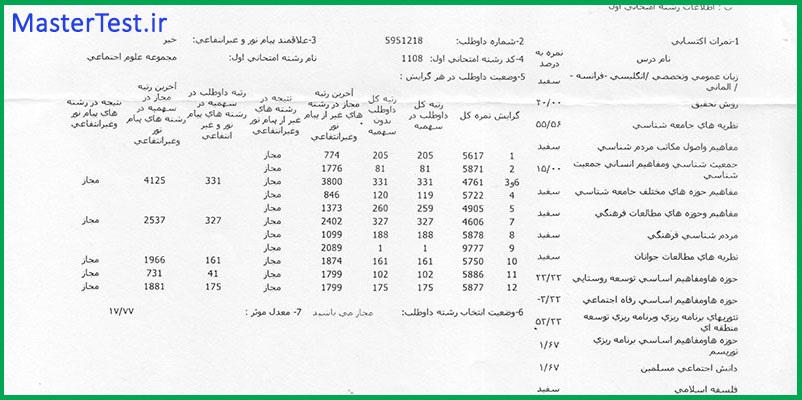 MasterTest.ir
ب : اطلاعات رشته امتحاني اول
1-نمرات اکتسابي
2-شماره داوطلب: S951218
3-علاقمند پيام نور و غيرانتفاعي: خير
4-کد رشته امتحاني اول: 1108
نام رشته امتحاني اول: مجموعه علوم اجتماعي
5-وضعيت داوطلب در هر گرايش :
نام درس نمره به درصد
زبان عمومي وتخصصي /انگليسي -فرانسه - / الماني سفيد
روش تحقيق ۲۰/۰۰
نظريه هاي جامعه شناسي ۵۵/۵۶
مفاهيم واصول مکاتب مردم شناسي سفيد
جمعيت شناسي ومفاهيم انساني جمعيت شناسي ۱۵/۰۰
مفاهيم حوزه هاي مختلف جامعه شناسي سفيد
مفاهيم وحوزه هاي مطالعات فرهنگي سفيد
مردم شناسي فرهنگي سفيد
نظريه هاي مطالعات جوانان سفيد
حوزه هاومفاهيم اساسي توسعه روستايي ۲۳/۳۳
حوزه هاومفاهيم اساسي رفاه اجتماعي ۳/۳۳-
تئوريهاي برنامه ريزي وبرنامه ريزي توسعه منطقه اي ۵۳/۳۳
حوزه هاومفاهيم اساسي برنامه ريزي توريسم ۱/۶۷
دانش اجتماعي مسلمين ۱/۶۷
فلسفه اسلامي سفيد
گرايش نمره کل رتبه کل داوطلب در سهميه رتبه کل داوطلب بدون سهميه آخرين رتبه مجاز در رشته هاي غير از پيام نور وغيرانتفاعي نتيجه در رشته هاي غير از پيام نور وغيرانتفاعي رتبه داوطلب در سهميه در رشته هاي پيام نور و غير انتفاعي آخرين رتبه مجاز در سهميه در رشته هاي پيام نور وغيرانتفاعي نتيجه در رشته هاي پيام نور وغيرانتفاعي
1 5617 205 205 774 مجاز
2 5871 81 81 1776 مجاز
3و6 4761 331 331 3800 مجاز 331 4125 مجاز
4 5722 119 120 846 مجاز
5 4905 259 260 1373 مجاز
7 4606 327 327 2402 مجاز 327 2537 مجاز
8 5878 188 188 1099 مجاز
9 9777 1 1 2089 مجاز
10 5750 161 161 1874 مجاز 161 1966 مجاز
11 5886 102 102 1799 مجاز 41 731 مجاز
12 5877 175 175 1799 مجاز 175 1881 مجاز
6-وضعيت انتخاب رشته داوطلب: مجاز مي باشيد
7- معدل موثر : ۱۷/۷۷